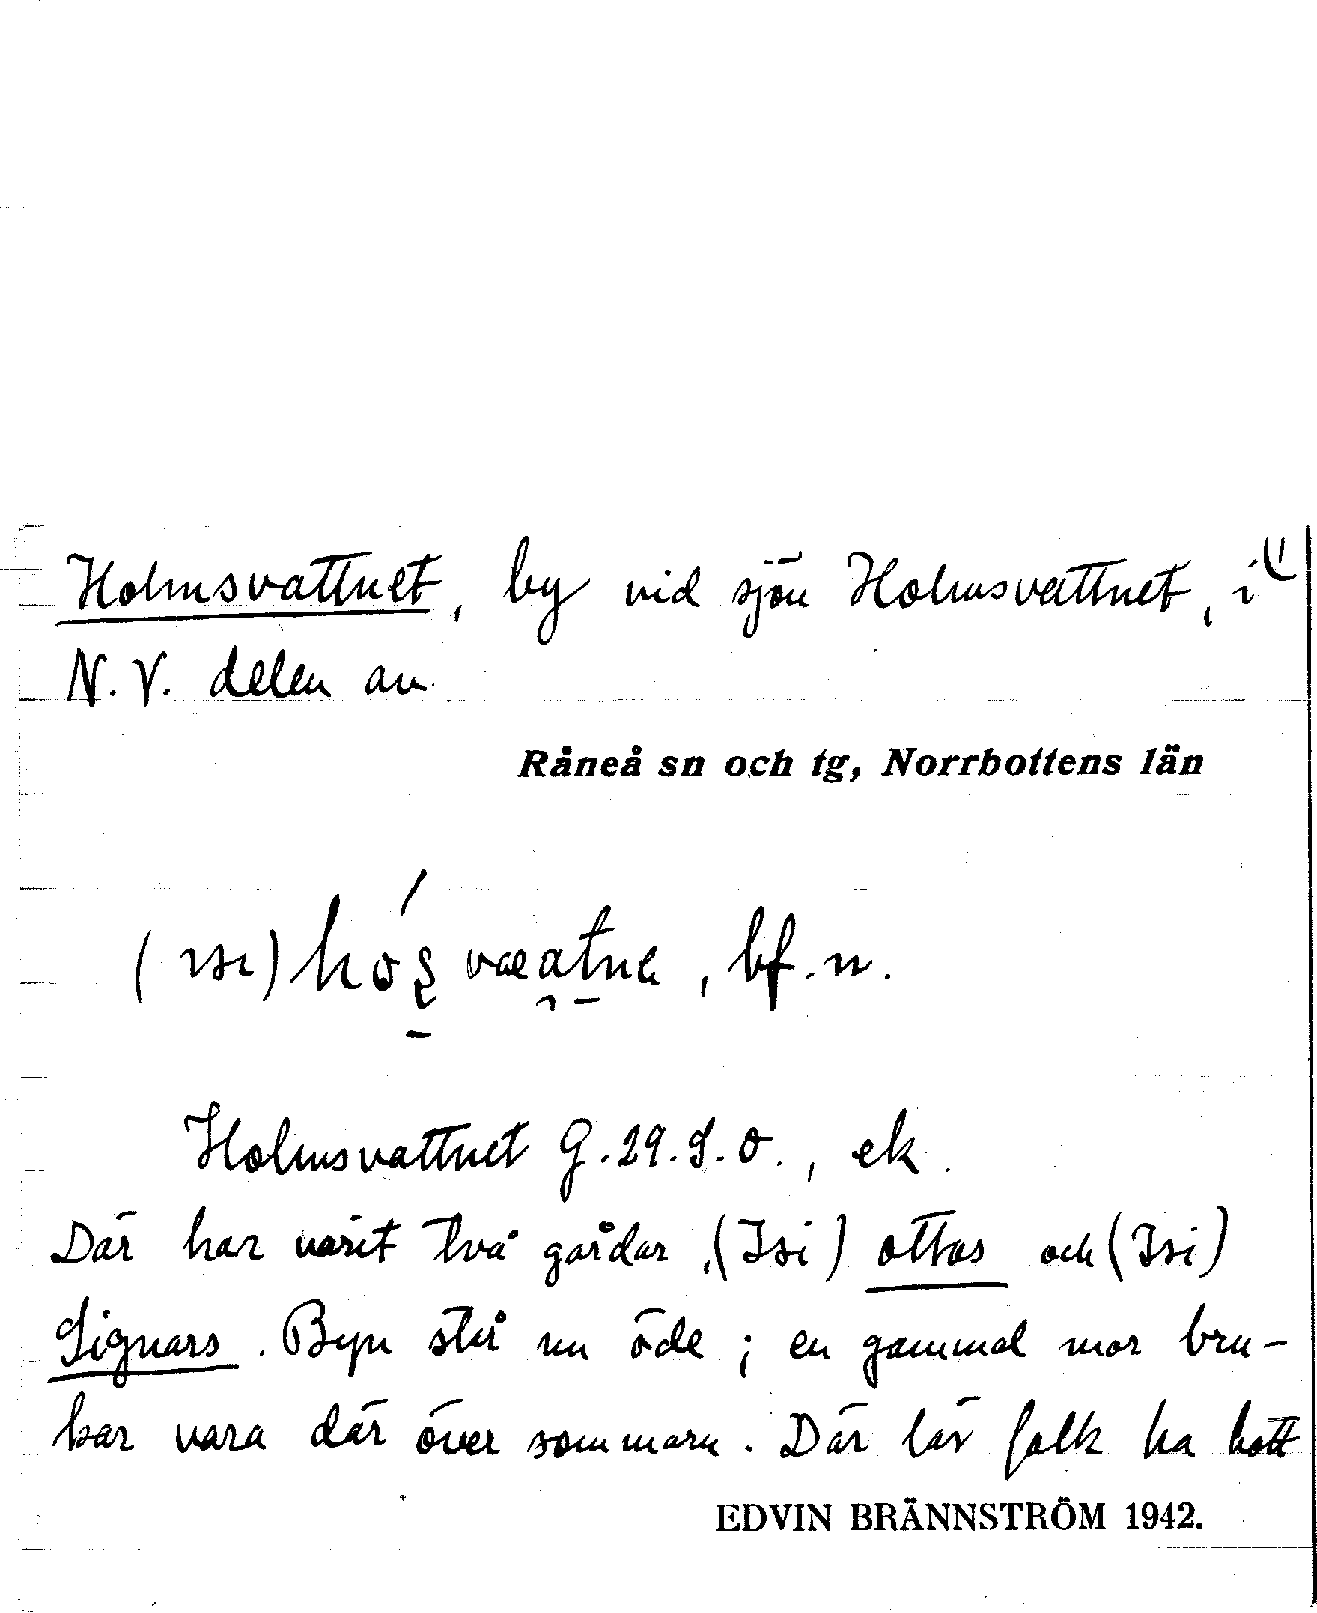 Holmsvattnet, by vid sjön Holmsvattnet, i
N.V. delen av
Råneå sn och tg, Norrbottens län
, bf. n.
Holmsvattnet G.29.S.O., ek.
Där har varit två gårdar, (Isi) ottos och (Isi)
Signars. Byn står nu öde; en gammal mor bru-
kar vara där över sommarn. Där lär folk ha bott
EDVIN BRÄNNSTRÖM 1942.